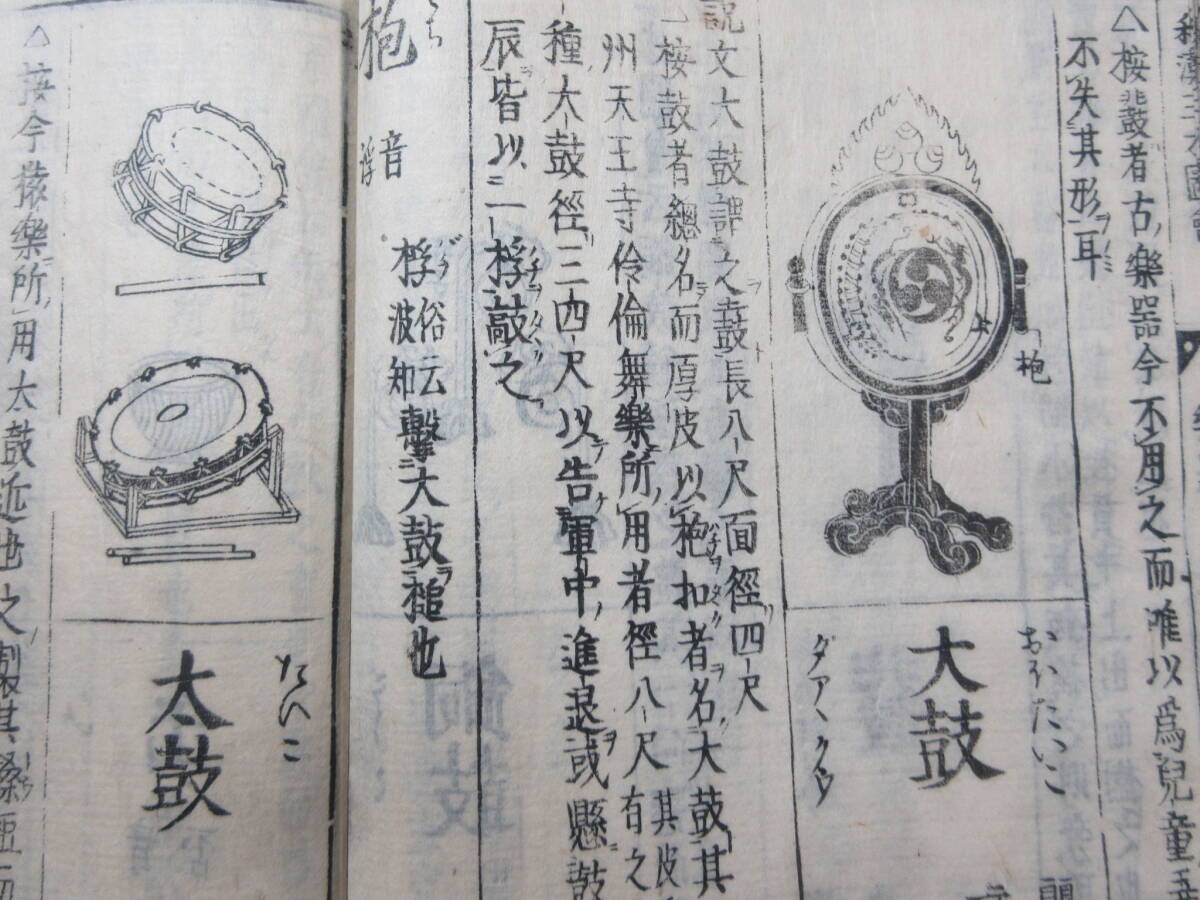 △按鼗者古樂器今不用之而唯以爲兒童
不失其形耳
枹
大鼓
おほたいこ
ダアヽクウ
說文大鼓謂之鼖鼓長八尺面徑四尺
按鼓者總名而厚皮以枹扣者名大鼓其
其皮
州天王寺伶倫舞樂所用者徑八尺有之
種大鼓徑三四尺以告軍中進退或懸鼓
辰皆以二桴敲之
枹
音
浮
桴
俗云
波知
擊大鼓槌也
太鼓
たいこ
△按今猿樂所用太鼓近世之製其